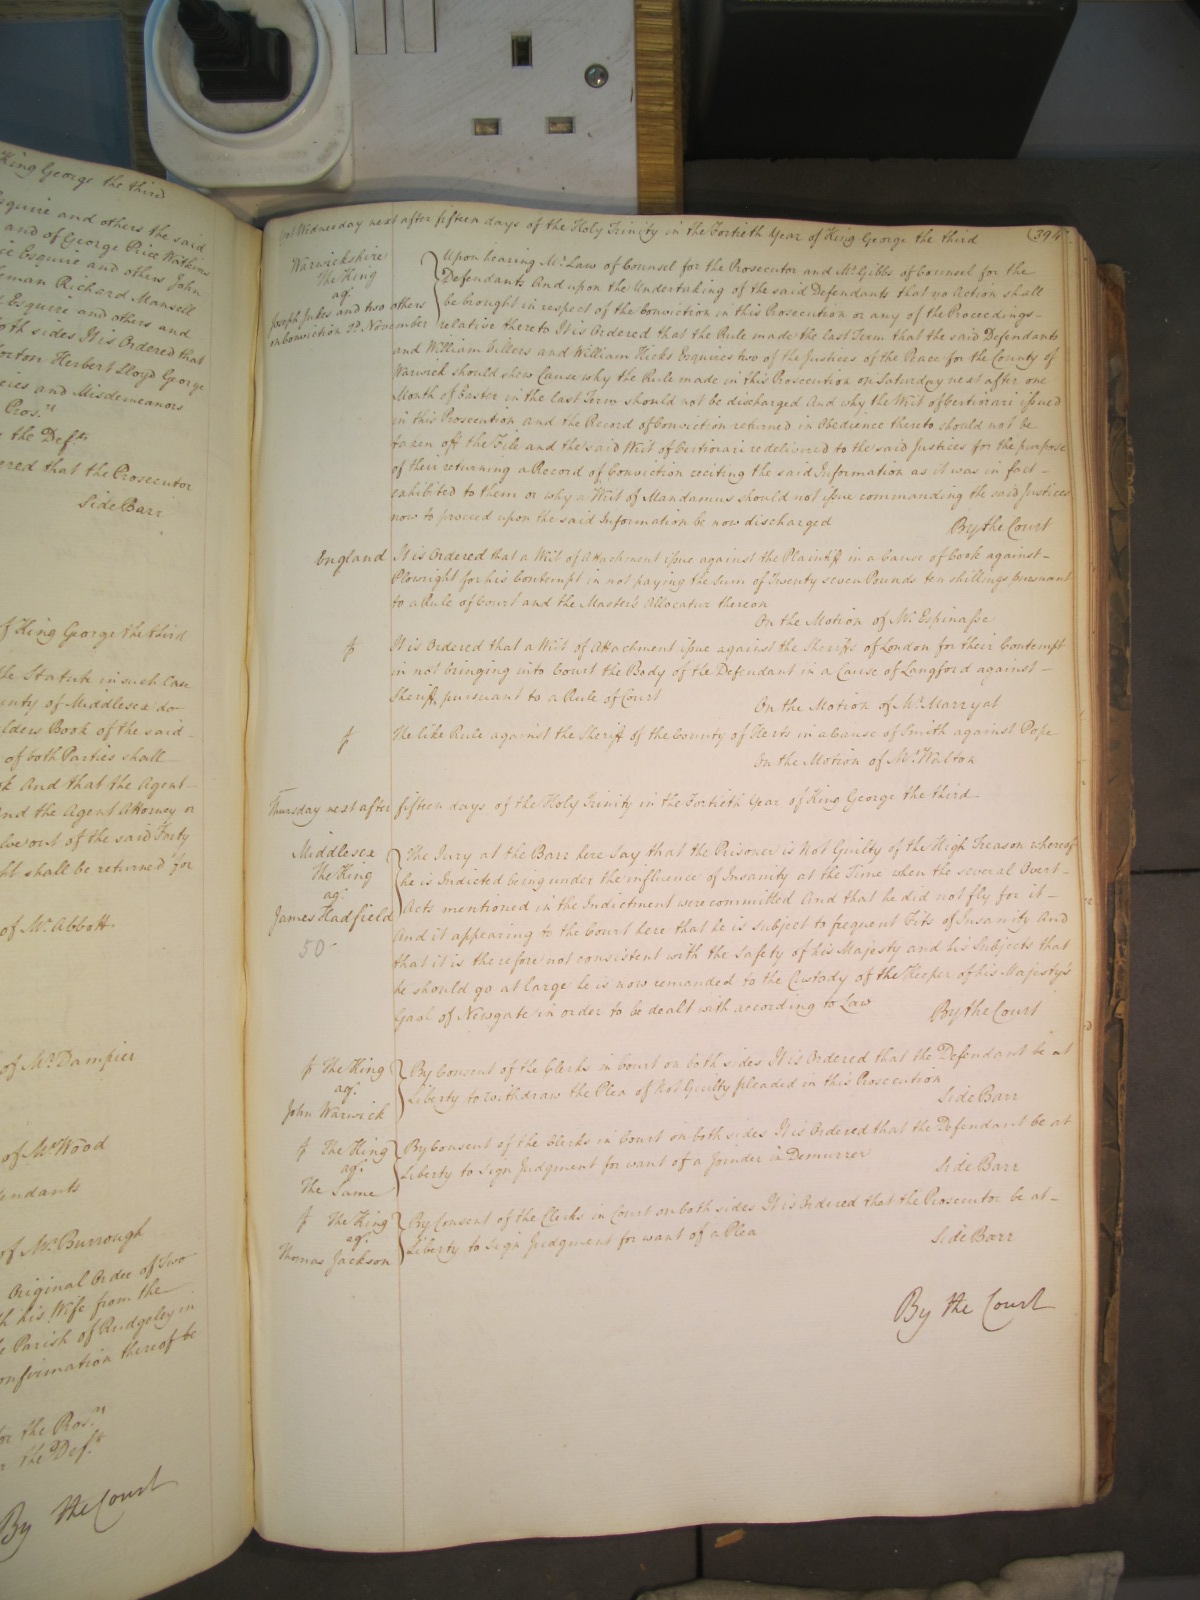 King George the third
Esquire and others the said
and of George Price Watkins
Esquire and others John
Richard Mansell
Esquire and others and
both sides It is Ordered that
Herbert Lloyd George
and Misdemeanors
Pros.rs
the Defts
ered that the Prosecutor
Side Barr
of King George the third
the Statute in such Case
nty of Middlesex do
lders Book of the said
of both Parties shall
And that the Agent
and the Agent Attorney or
out of the said Forty
shall be returned for
of Mr. Abbott.
of Mr. Dampier
of Mr. Wood
endants
of Mr. Burrough
Original Order of Two
his Wife from the
Parish of Rudgeley in
onfirmation thereof be
for the Pros.rs
the Def.ts
By the Court
Yet Wednesday next after fifteen days of the Holy Trinity in the Fortieth Year of King George the third
(394
Warwickshire
The King
agt.
Joseph Jukes and two others
on Conviction P. November
Upon hearing Mr. Law of Counsel for the Prosecutor and Mr. Gibbs of Counsel for the
Defendants And upon the Undertaking of the said Defendants that no Action shall
be brought in respect of the Conviction in this Prosecution or any of the Proceedings
relative thereto It is Ordered that the Rule made the last Term that the said Defendants
and William Villers and William Hicks Esquires two of the Justices of the Peace for the County of
Warwick should shew Cause why the Rule made in this Prosecution on Saturday next after one
Month of Easter in the last Term should not be discharged And why the Writ of Certiorari issued
in this Prosecution and the Record of Conviction returned in Obedience thereto should not be
taken off the File and the said Writ of Certiorari redelivered to the said Justices for the purpose
of their returning a Record of Conviction reciting the said Information as it was in fact
exhibited to them or why a Writ of Mandamus should not issue commanding the said Justices
now to proceed upon the said Information be now discharged
By the Court
England
It is Ordered that a Writ of Attachment issue against the Plaintiff in a Cause of Cook against
Plowright for his Contempt in not paying the Sum of Twenty seven Pounds ten shillings pursuant
to a Rule of Court and the Master's Allocatur thereon
On the Motion of Mr. Espinasse
It is Ordered that a Writ of Attachment issue against the Sheriffs of London for their Contempt
in not bringing into Court the Body of the Defendant in a Cause of Langford against
Sheriff pursuant to a Rule of Court
On the Motion of Mr. Marryat
The like Rule against the Sheriff of the County of Herts in a Cause of Smith against Pope
On the Motion of Mr. Walton
Thursday next after fifteen days of the Holy Trinity in the Fortieth Year of King George the third
Middlesex
The King
agt.
James Hadfield
50
The Jury at the Barr here say that the Prisoner is Not Guilty of the High Treason whereof
he is Indicted being under the influence of Insanity at the Time when the several Overt
Acts mentioned in the Indictment were committed And that he did not fly for it
And it appearing to the Court here that he is subject to frequent Fits of Insanity And
that it is therefore not consistent with the Safety of his Majesty and his Subjects that
he should go at large he is now remanded to the Custody of the Keeper of his Majesty's
Gaol of Newgate in order to be dealt with according to Law
By the Court
The King
agt.
John Warwick
By Consent of the Clerks in Court on both sides It is Ordered that the Defendant be at
Liberty to withdraw the Plea of Not Guilty pleaded in this Prosecution
Side Barr
The King
agt.
The Same
By Consent of the Clerks in Court on both sides It is Ordered that the Defendant be at
Liberty to sign Judgment for want of a Joinder in Demurrer
Side Barr
The King
agt.
Thomas Jackson
By Consent of the Clerks in Court on both sides It is Ordered that the Prosecutor be at
Liberty to sign Judgment for want of a Plea
Side Barr
By the Court